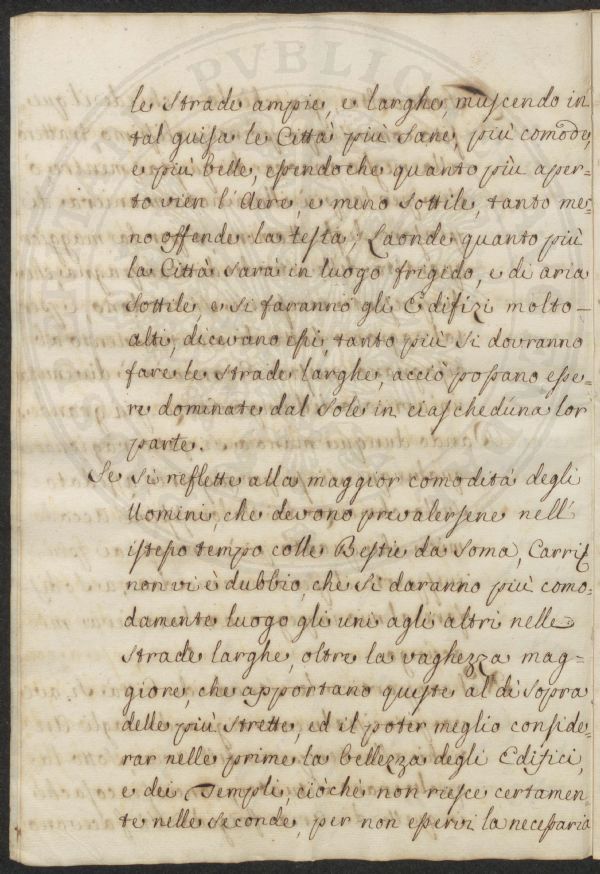 le Strade ampie, e larghe, riuscendo in
tal guisa le Città più Sane, più comode,
e più belle, essendo che quanto più aper-
to vien l'Aere, e meno Sottile, tanto me-
no offende la testa; Laonde quanto più
la Città Sarà in luogo frigido, e di aria
Sottile, e si faranno gli Edifizi molto
alti, dicevano essi, tanto più si dovranno
fare le Strade larghe, acciò possano esse-
re dominate dal Sole in ciascheduna lor
parte.
Se si reflette alla maggior comodità degli
Uomini, che devono prevalersene nell'
istesso tempo colle Bestie da Soma, Carri
non vi è dubbio, che Si daranno più como-
damente luogo gli uni agli altri nelle
Strade larghe, oltre la vaghezza mag-
giore, che apportano queste al di Sopra
delle più Strette, ed il poter meglio conside-
rar nelle prime la bellezza degli Edifici,
e dei Templi, ciòchè non riesce certamen-
te nelle Seconde, per non esservi la necessaria